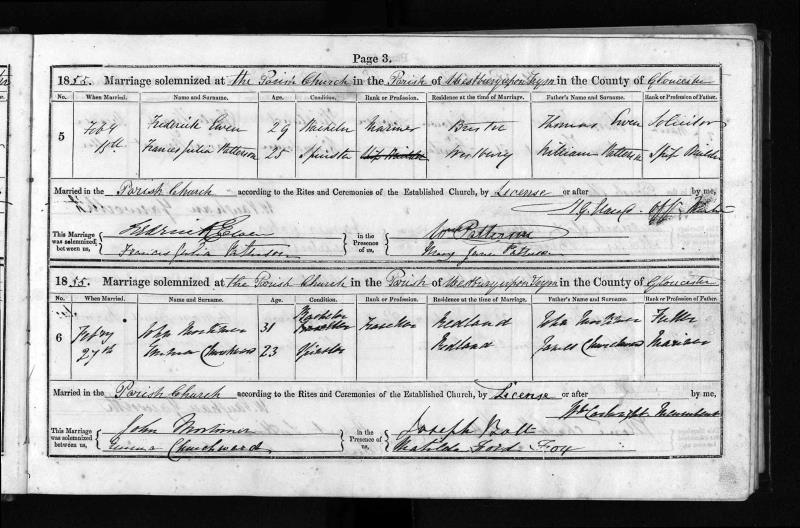 Page 3.
1855. Marriage solemnized at the Parish Church in the Parish of Westbury upon Trym in the County of Gloucester
No. When Married. Name and Surname. Age. Condition. Rank or Profession. Residence at the time of Marriage. Father's Name and Surname. Rank or Profession of Father.
5 Feby Frederick Owen 29 Bachelor Mariner Bristol Thomas Owen Solicitor
Frances Julia Patterson 25 Spinster Westbury William Patterson Ship Builder
Married in the Parish Church according to the Rites and Ceremonies of the Established Church, by License or after by me,
This Marriage was solemnized between us, Frederick Owen in the Presence of us, Wm Patterson
Frances Julia Patterson Mary Jane Patterson
1855. Marriage solemnized at the Parish Church in the Parish of Westbury upon Trym in the County of Gloucester
No. When Married. Name and Surname. Age. Condition. Rank or Profession. Residence at the time of Marriage. Father's Name and Surname. Rank or Profession of Father.
6 Feby John Mortimer 31 Bachelor Redland John Mortimer
27th Emma Churchward 23 Spinster Redland James Churchward Mariner
Married in the Parish Church according to the Rites and Ceremonies of the Established Church, by License or after by me,
Wm Cartwright Incumbent
This Marriage was solemnized between us, John Mortimer in the Presence of us, Joseph Bolt
Emma Churchward Matilda Ford Fox